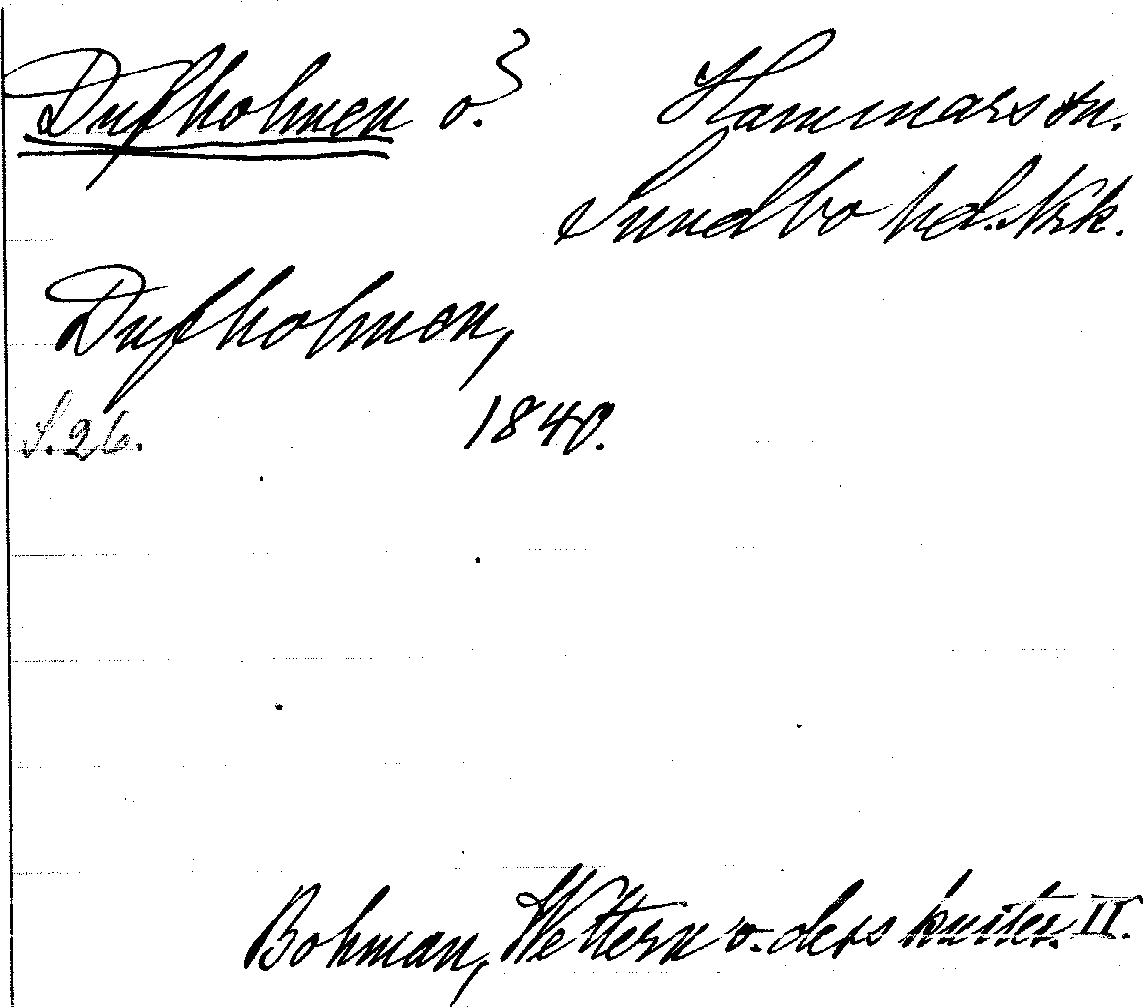 Dufholmen ö. Hammars sn.
Sundbo hd. Nrk.
Dufholmen,
S. 26. 1840.
Bohman, Wettern o. dess kuster. II.